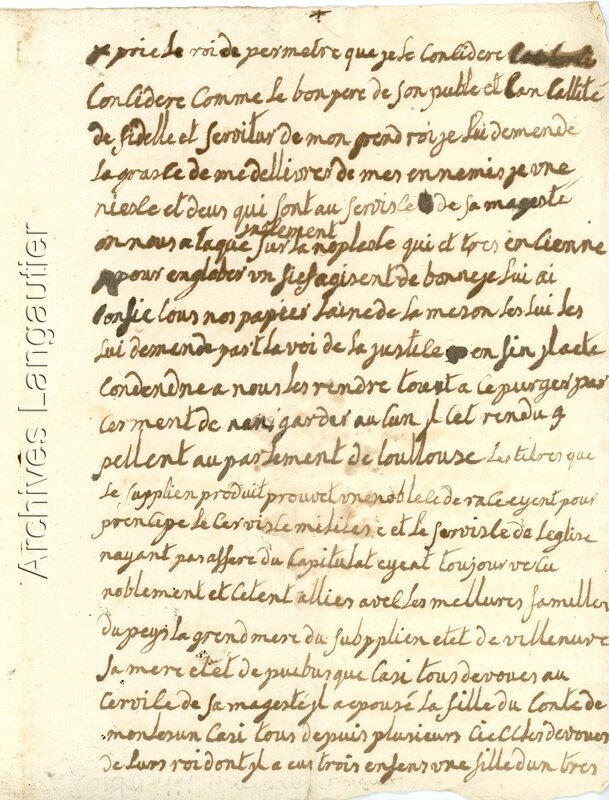 prie le roi de permetre que je le Considere
Considere Comme le bon pere de son puble et Can Callité
de fidelle et servitur de mon grend roi je lui demende
la grasce de me dellivres de mes ennemis je une
niesse et deus qui sont au servisse de sa mageste
on nous ataque injustement sur la noplesse qui et tres encienne
pour englober un fiefs agisent de bonne je lui ai
Confie tous nos papier laine de la meson les lui les
lui demende part la voi de la justice en fin il a ete
Condendne a nous les rendre tout a Ce purger par
Cerment de nen garder auCun il Cet rendu
pellent au parlement de toullouse les titres que
le supplien produit prouvet une noblece de race eyent pour
prencipe le Cervisse militere et le servisse de leglise
nayant pas affere du Capitulat eyent toujour vecu
noblement et Cetent allies avec les mellures familles
du peys la grend mere du subpplien etet de villenuve
sa mere etet de puebusque Casi tous devoues au
Cervice de sa magesté il a epousé la fille du Conte de
monlesun Casi tous depuis plusieurs CieCCles devoues
de lurs roi dont il a eus trois enfens une fille dun tres
Archives Langautier